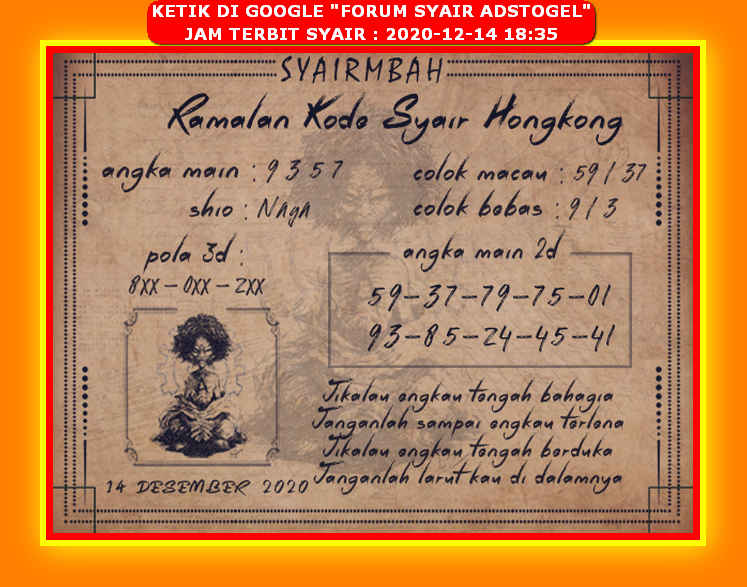 KETIK DI GOOGLE "FORUM SYAIR ADSTOGEL"
JAM TERBIT SYAIR : 2020-12-14 18:35
SYAIRMBAH
Ramalan Kode Syair Hongkong
angka main : 9 3 5 7
colok macau : 59 / 37
shio : NAgA
colok bebas : 9 / 3
pola 3d :
8XX - 0XX - 2XX
angka main 2d
59-37-79-75-01
93-85-24-45-41
Jikalau engkau tengah bahagia
Janganlah sampai engkau terlena
Jikalau engkau tengah berduka
Janganlah larut kau di dalamnya
14 DESEMBER 2020